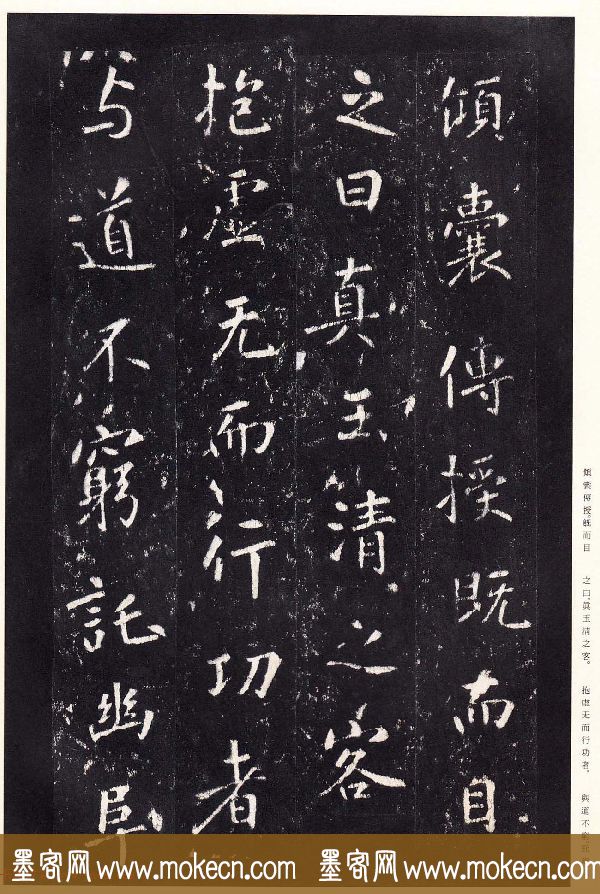 傾囊傳授既而目
之曰真玉清之客
抱虛无而行功者
与道不窮託幽
傾囊傳授。既而目 之曰。眞玉清之客。 抱虛无而行功者。 與道不
墨客网 www.mokecn.com 墨客网 www.mokecn.com